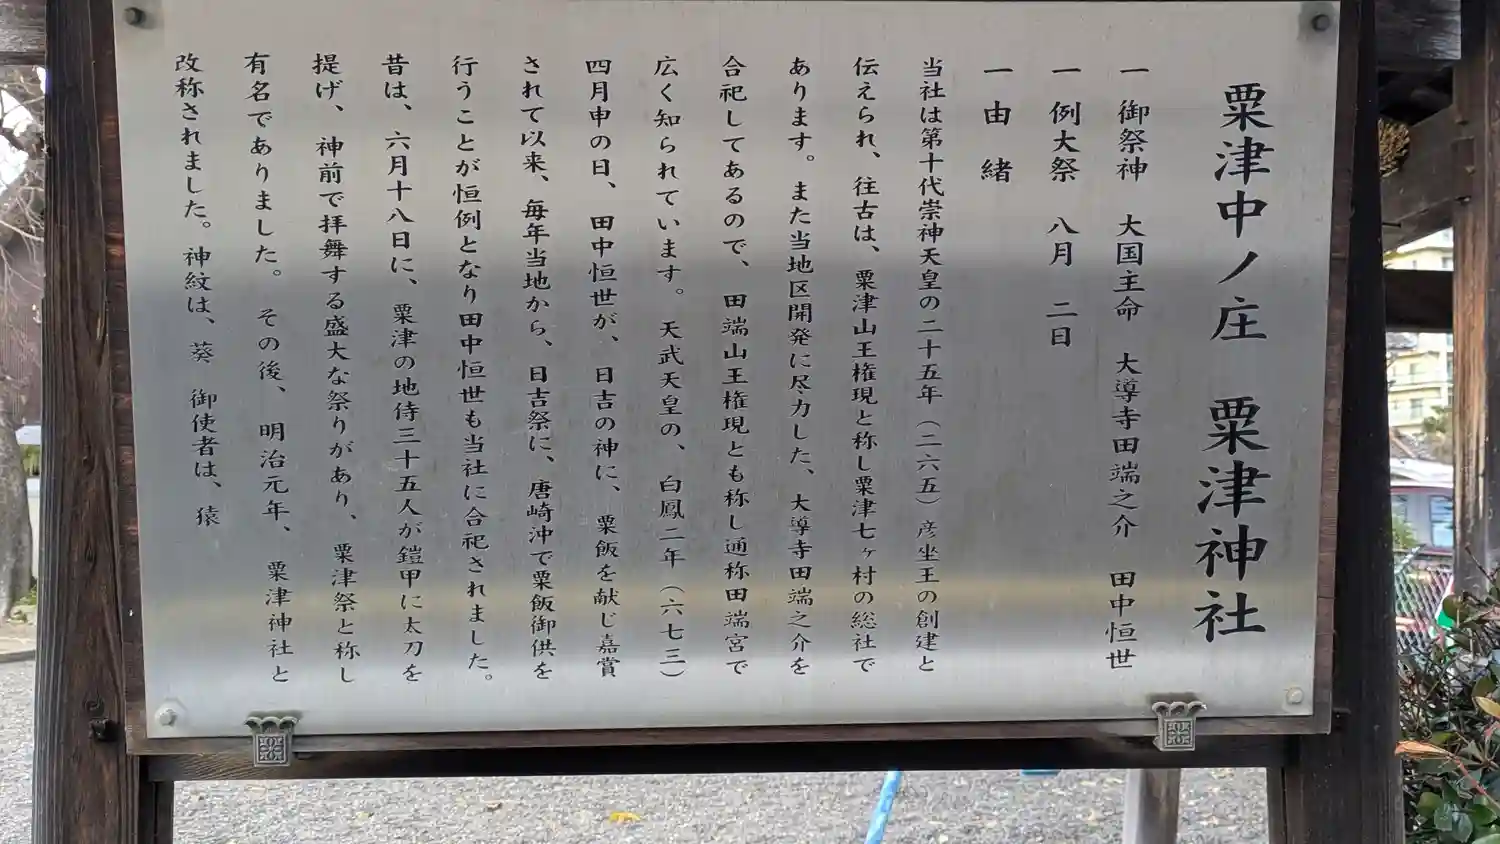 粟津中ノ庄　粟津神社
一　御祭神　大国主命　大導寺田端之介　田中恒世
一　例大祭　八月　二日
一　由　緒
当社は第十代崇神天皇の二十五年（二六五）彦坐王の創建と
伝えられ、往古は、粟津山王権現と称し粟津七ヶ村の総社で
あります。また当地区開発に尽力した、大導寺田端之介を
合祀してあるので、田端山王権現とも称し通称田端宮で
広く知られています。天武天皇の、白鳳二年（六七三）
四月申の日、田中恒世が、日吉の神に、粟飯を献じ嘉賞
されて以来、毎年当地から、日吉祭に、唐崎沖で粟飯御供を
行うことが恒例となり田中恒世も当社に合祀されました。
昔は、六月十八日に、粟津の地侍三十五人が鎧甲に太刀を
提げ、神前で拝舞する盛大な祭りがあり、粟津祭と称し
有名でありました。その後、明治元年、粟津神社と
改称されました。神紋は、葵　御使者は、猿